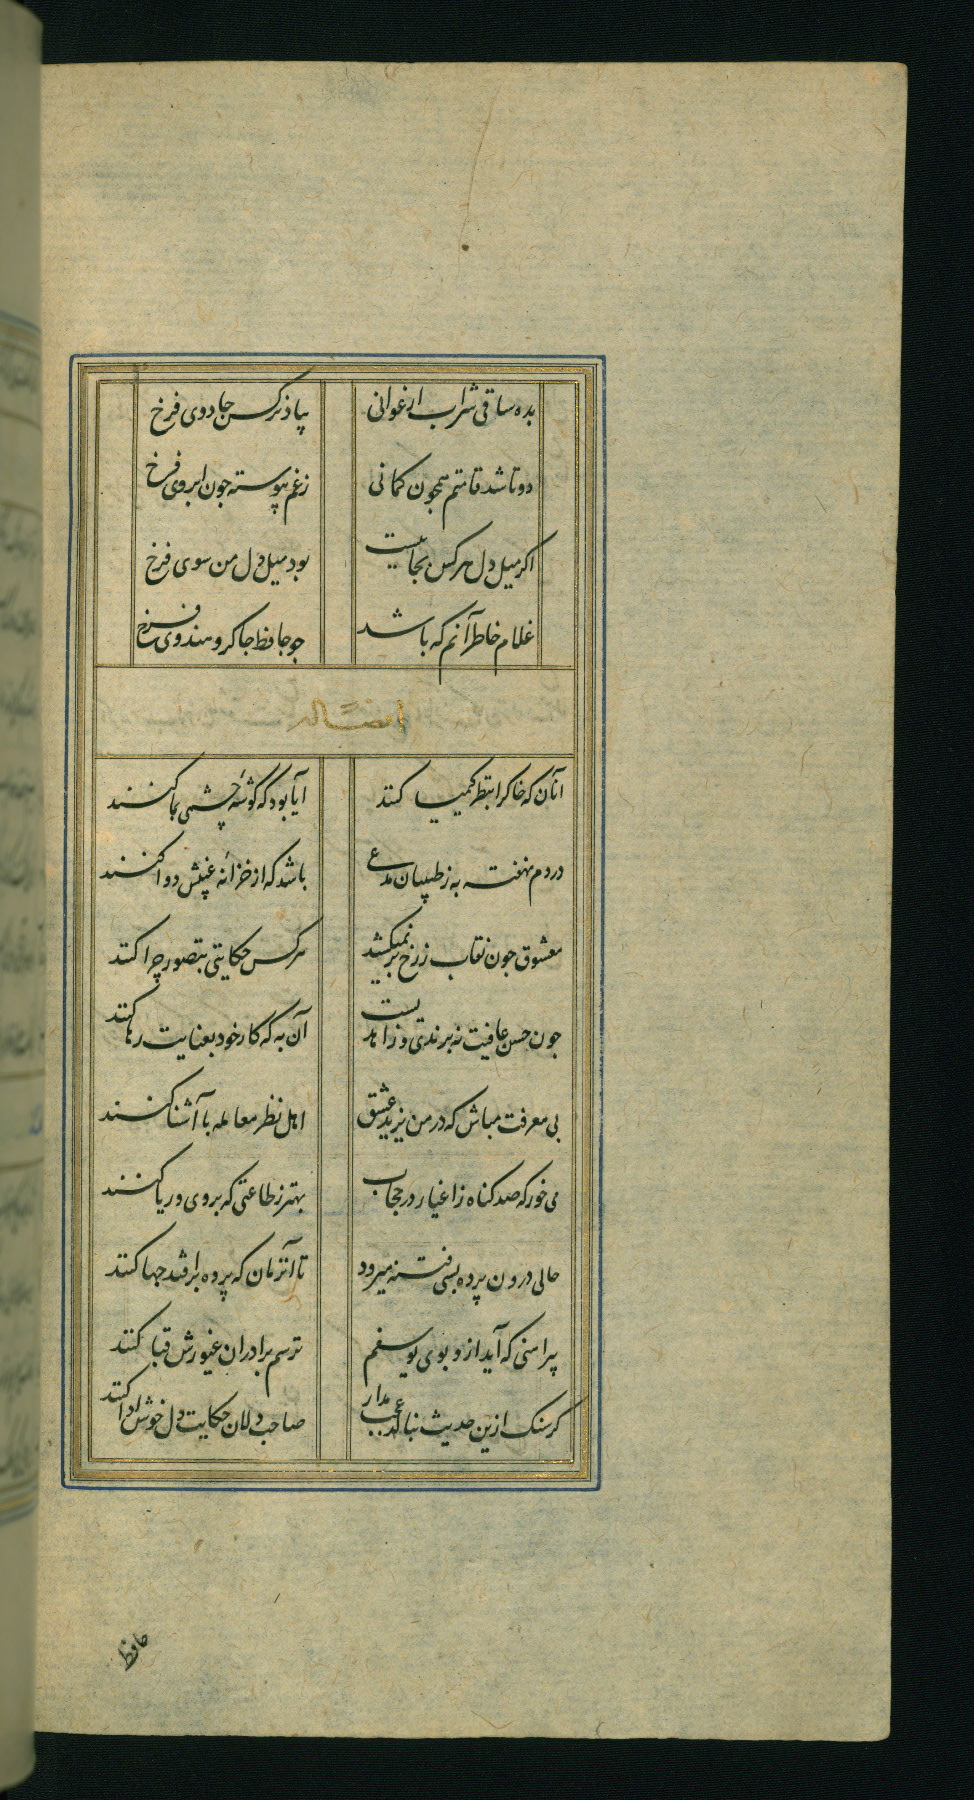 بده ساقی شراب ارغوانی بیاد نرکس جادوی فرخ
دوتا شد قامتم همچون کمانی زغم پیوسته چون ابروی فرخ
اکر میل دل هرکس بجاییست بود میل دل من سوی فرخ
غلام خاطر آنم که باشد چو حافظ چاکر و هندوی فرخ
ایضاً له
آنان که خاک را بنظر کیمیا کنند آیا بود که گوشهٔ چشمی بما کنند
دردم نهفته به ز طبیبان مدعی باشد که از خزانهٔ غیبش دوا کنند
معشوق چون نقاب ز رخ بر نمیکشد هرکس حکایتی بتصور چرا کنند
چون حسن عافیت نه برندی و زاهدیست آن به که کار خود بعنایت رها کنند
بی معرفت مباش که در من یزید عشق اهل نظر معامله با آشنا کنند
می خور که صد کناه ز اغیار در حجاب بهتر ز طاعتی که بروی و ریا کنند
حالی درون پرده بسی فتنه میرود تا آنزمان که پرده برافتد چها کنند
پیراهنی که آید ازو بوی یوسفم ترسم برادران غیورش قبا کنند
کر سنک ازین حدیث بنالد عجب مدار صاحب دلان حکایت دل خوش ادا کنند
حافظ